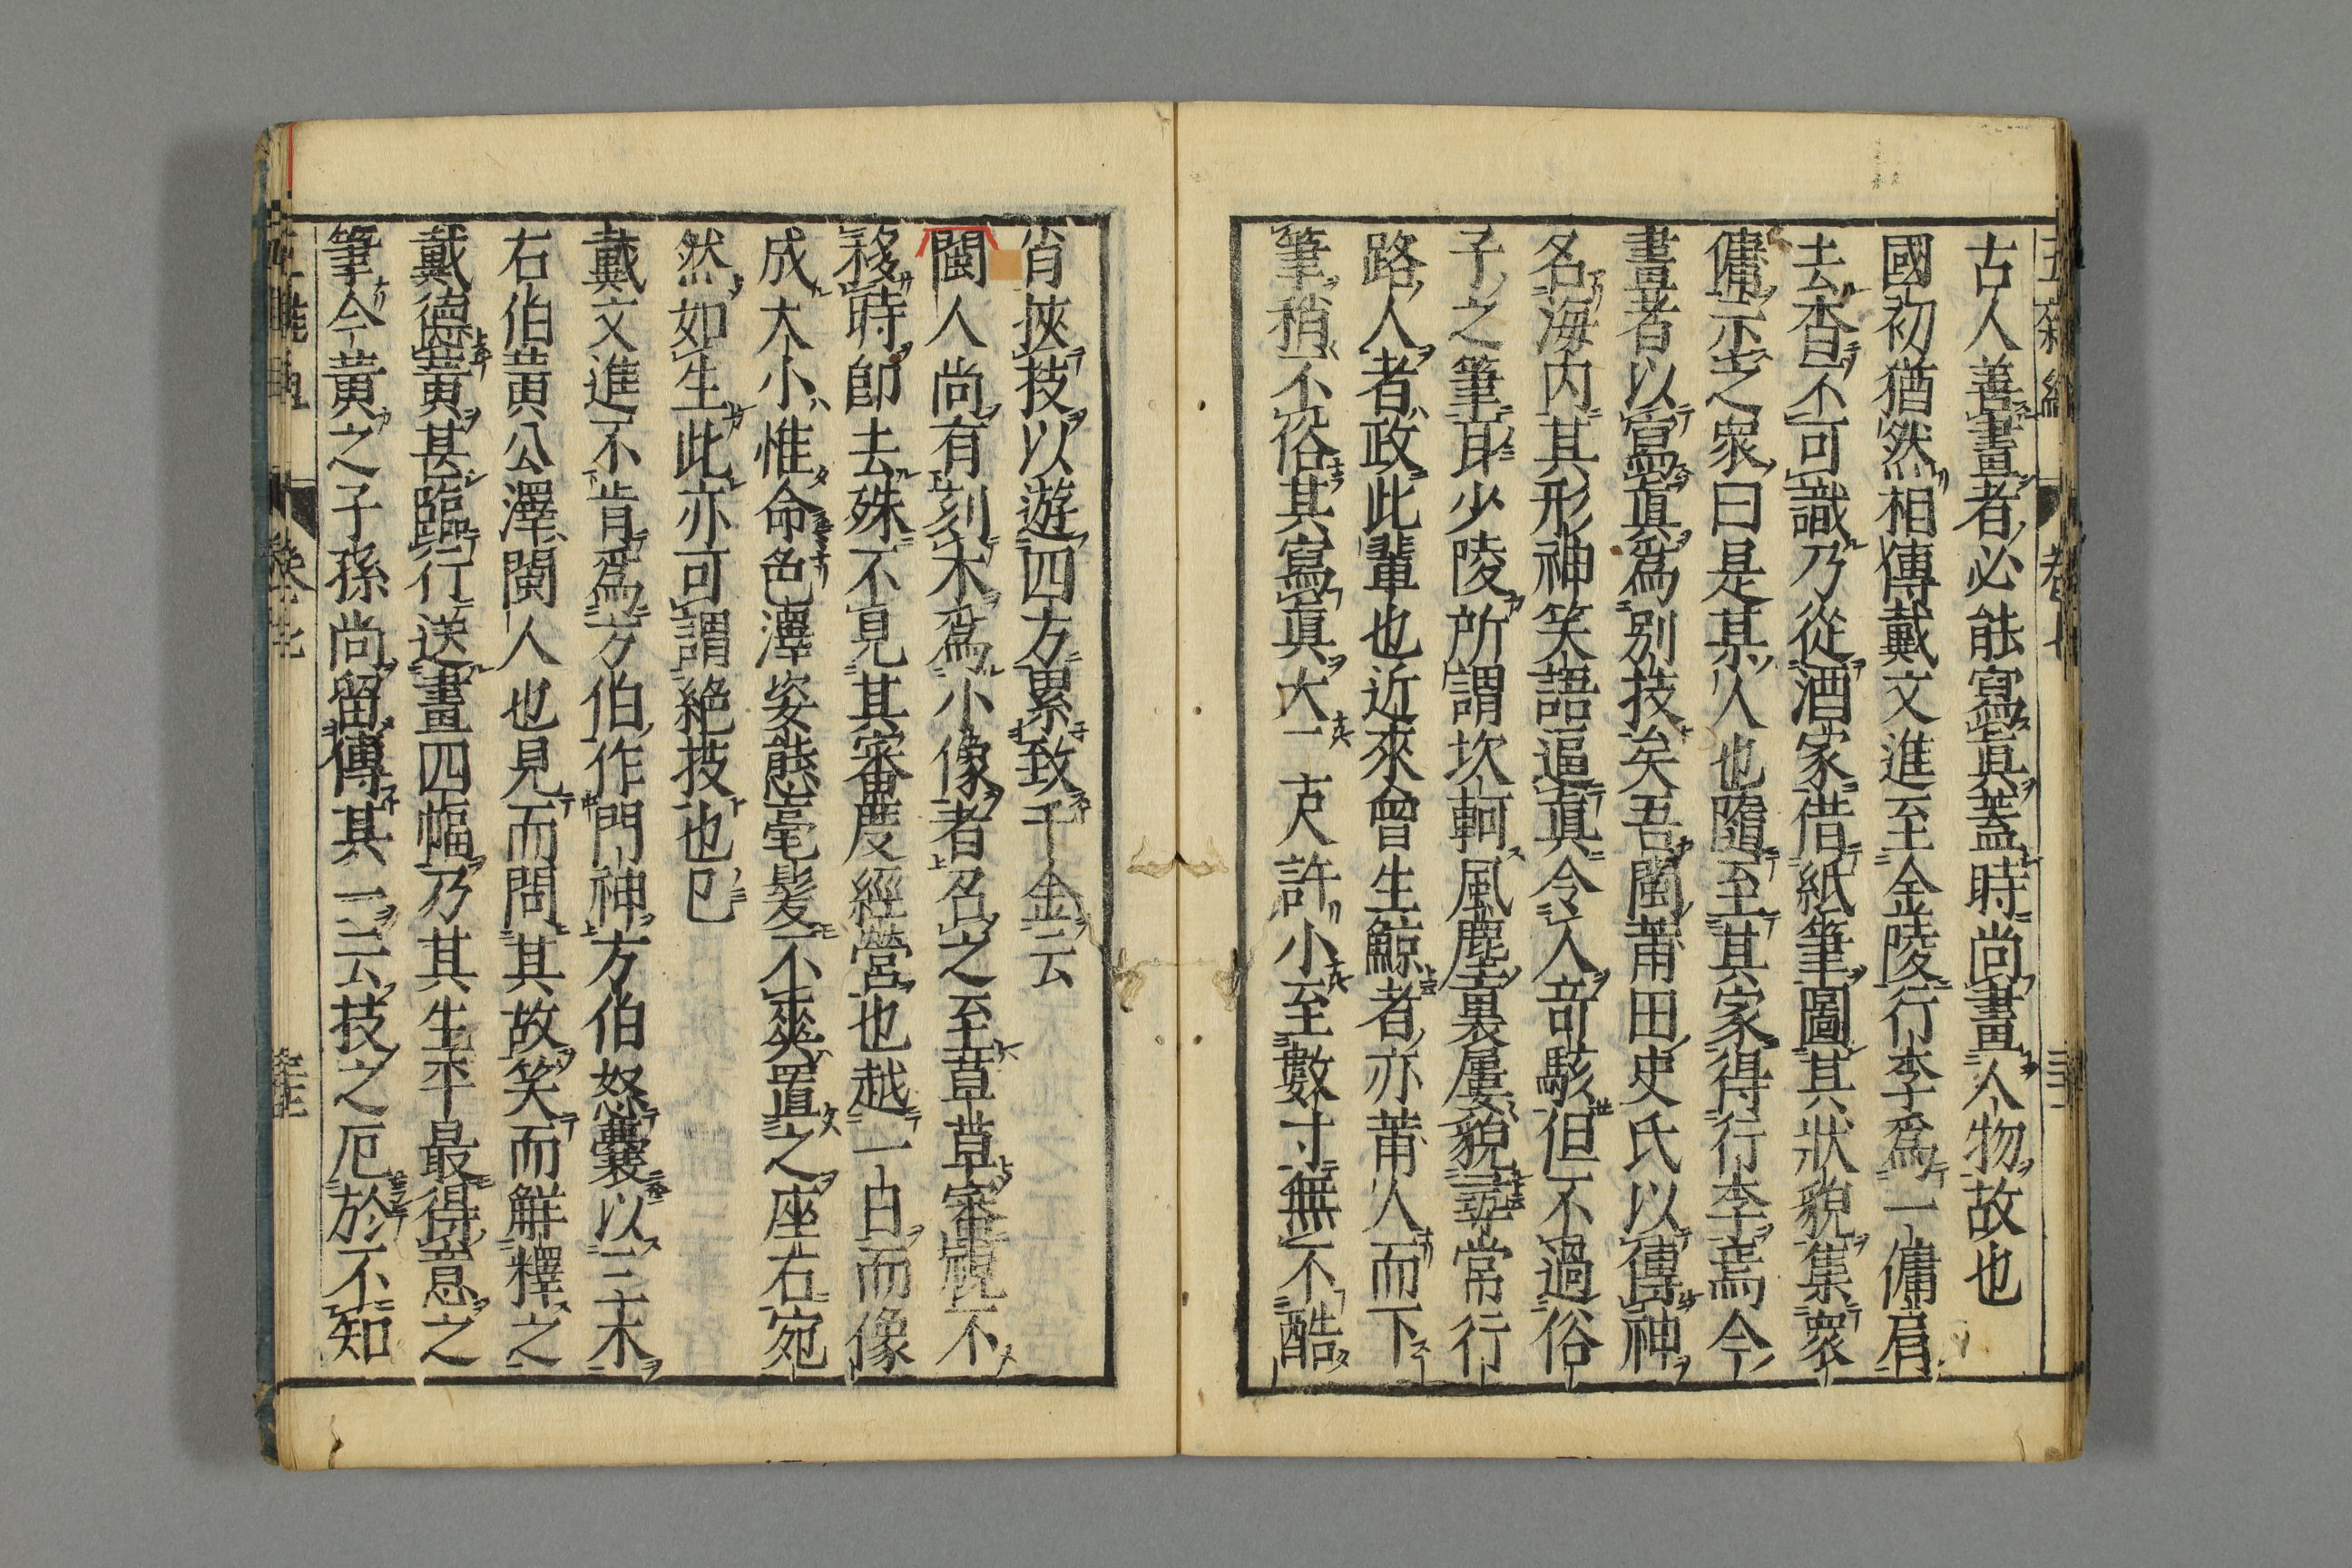 五雜組 卷七
古人善畫者必能寫眞蓋時尚畫人物故也
國初猶然相傳戴文進至金陵行李爲一傭肩
去杳不可識乃從酒家借紙筆圖其狀貌集衆
傭示之衆曰是某人也隨至其家得行李焉今
畫者以寫眞爲別技矣吾閩莆田史氏以傳神
名海内其形神笑語逼眞令人奇駭但不過俗
子之筆耳少陵所謂坎軻風塵裏屢貌尋常行
路人者政此輩也近來曾生鯨者亦莆人而下
筆稍不俗其寫眞大一　古尺許小至數寸無不酷
肖挾技以遊四方累致千金云
閩人尚有刻木爲小像者名之至草草審視不
移時卽去殊不見其審度經營也越一日而像
成大小惟命色澤姿態毫髪不爽置之座右宛
然如生此亦可謂絶技也已
戴文進不肯爲方伯作門神方伯怒囊以三木
右伯黄公澤閩人也見而問其故笑而觧釋之
戴德黄甚臨行送畫四幅乃其生平最得意之
筆今黄之子孫尚留傳其一云技之厄於不知